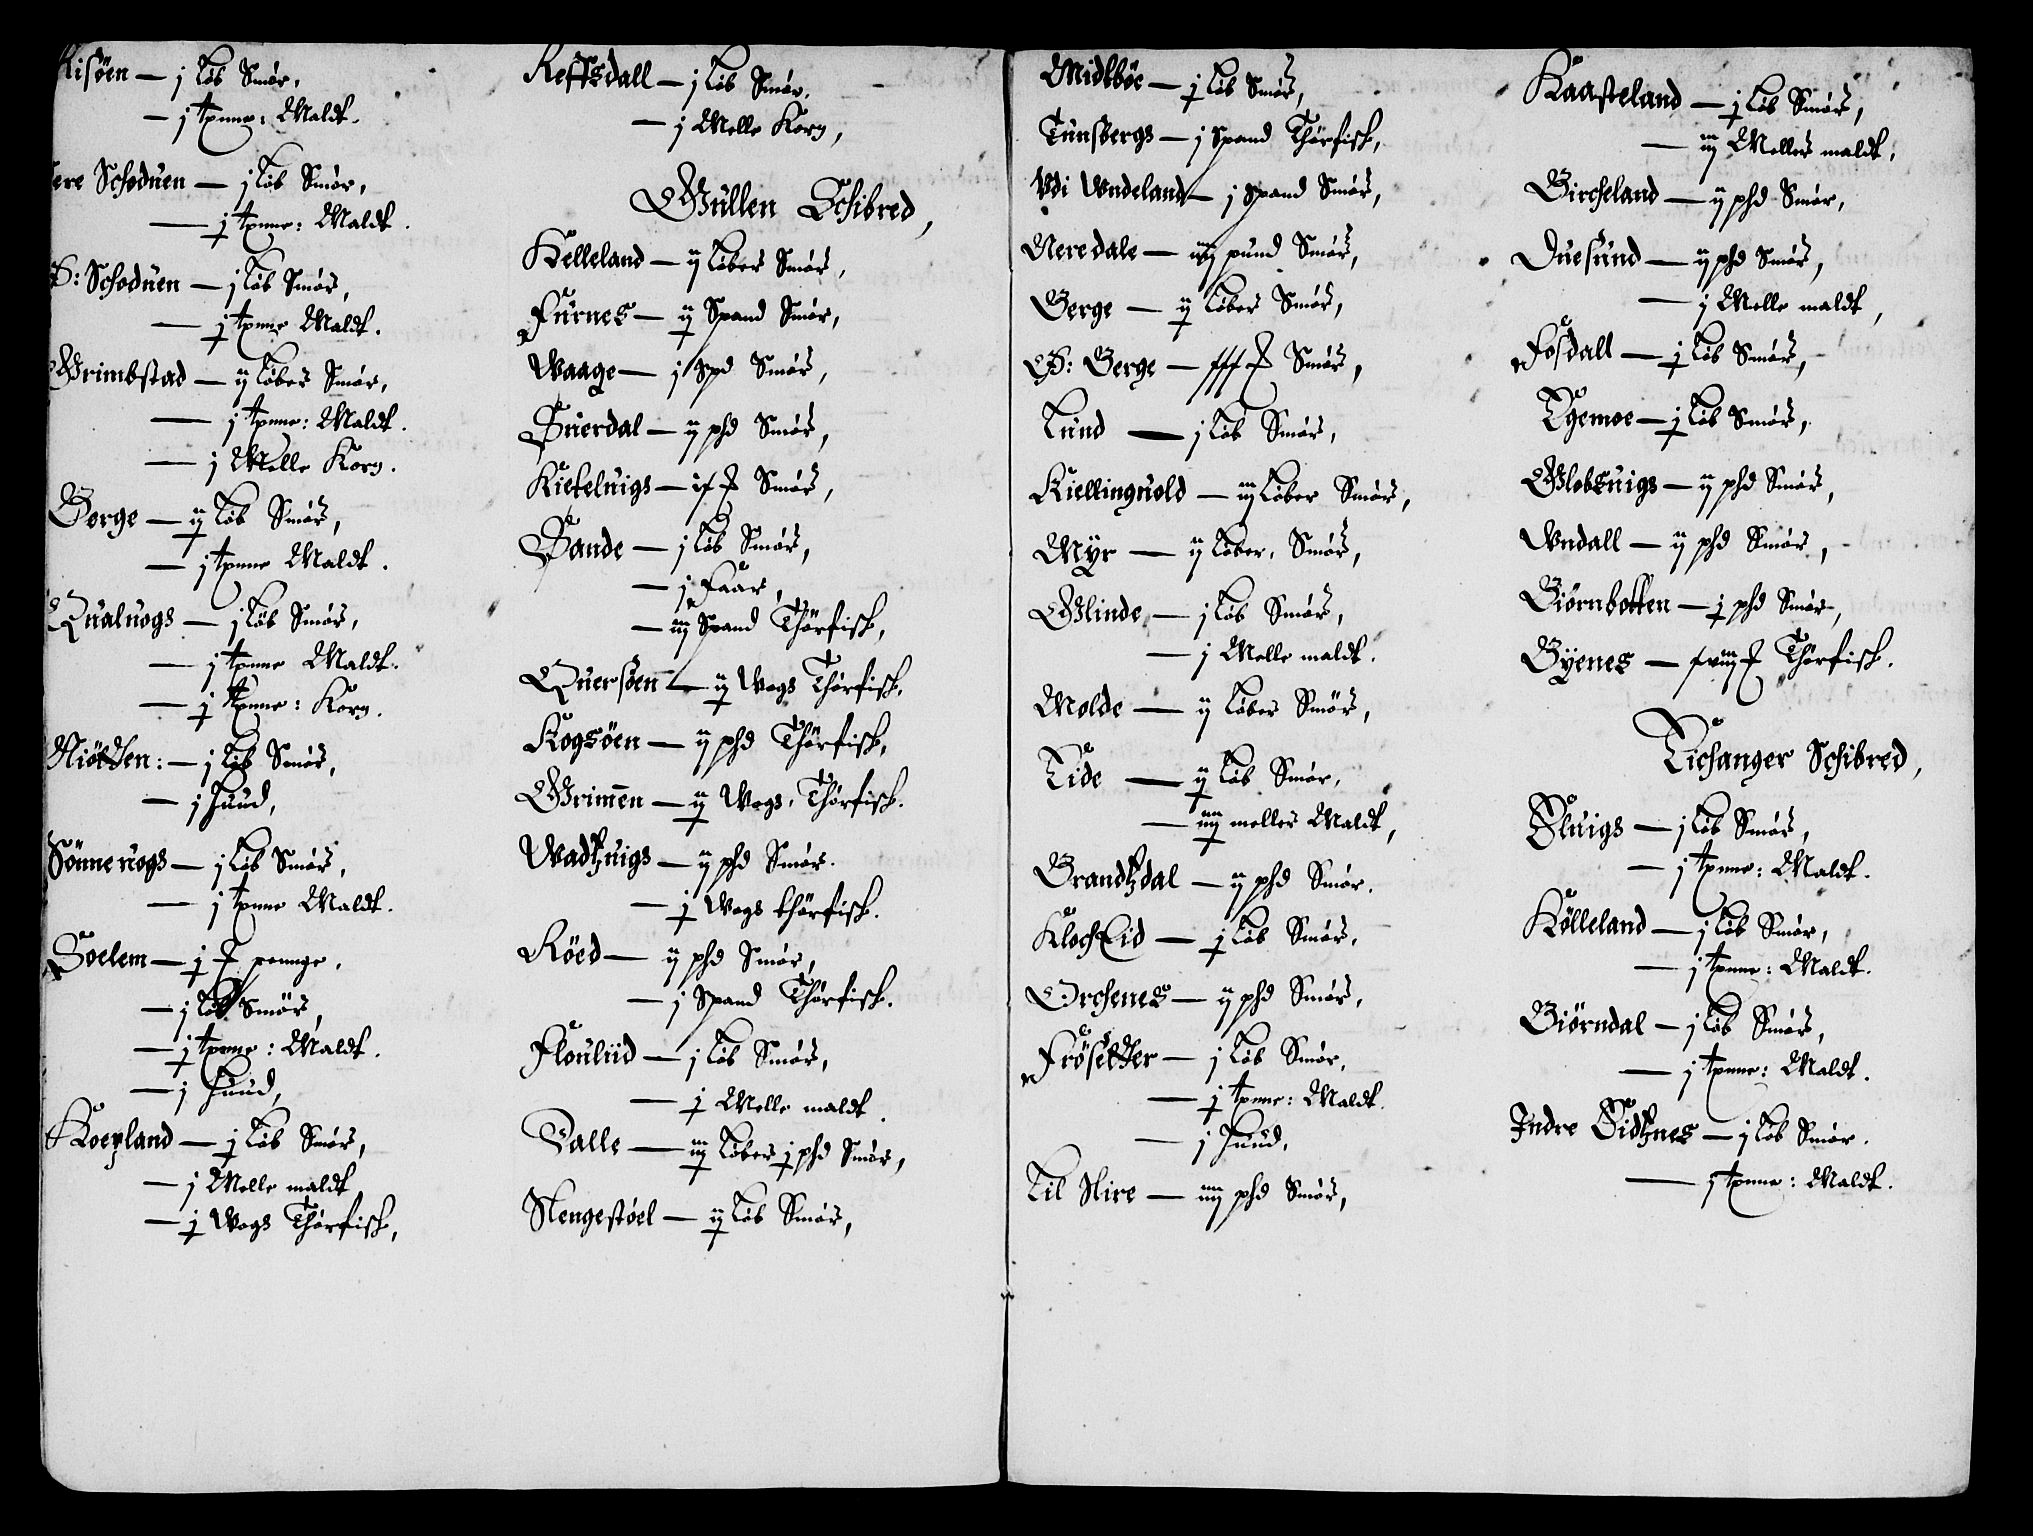 Risöen — j Löb Smör,
— j tønne: Maldt.
ere Schoduen — j löb Smör,
— j tønne: Maldt.
B: Schoduen — j löb Smör,
— j tønne Maldt.
Grimbstad — ij Löber Smör,
— j tønne: Maldt.
— j Melle Korn.
Berge — ij Löb Smör,
— j tønne Maldt.
Qualuogs — j Löb Smör,
— j tønne Maldt.
— j tønne: Korn.
Niötthen: — j löb Smör,
— j Huud,
Sönneuogs — j Löb Smör,
— j tønne Maldt.
Soelem — j penge,
— j löb Smör,
— j tønne: Maldt.
— j Huud,
Koepland — j Löb Smör,
— j Melle maldt
— j Wogs Thörfisk,
Reffsdall — j Löb Smör.
— j Melle Korn,
Güllen Schibred,
Kelleland — ij Löber Smör,
Fürnes — ij Spand Smör,
Waage — j Spd Smör,
Suerdal — ij phd Smör,
Kiefeluigs — Smör,
Sande — j Löb Smör,
— j Faar,
— iij Spand Thörfisk,
Quersöen — ij Wogs Thörfisk,
Kogsöen — ij phd Thörfisk,
Grimen — ij Wogs, Thörfisk.
Wadtzuigs — ij phd Smör.
— j Wogs thörfisk.
Röed — ij phd Smör,
— j Spand Thörfisk.
Flouliid — j Löb Smör,
— j Melle maldt.
Dalle — iij Löber j phd Smör,
Slengestöel — ij Löb Smör,
Midtböe — j Löb Smör,
Tünsbergs — j Spand Thörfisk,
Vdi Vndeland — j Spand Smör,
Neredale — iiij pund Smör,
Berge — ij Löber Smör,
B: Berge — Smör,
Lund — j Löb Smör,
Kiellinguold — iij Löber Smör,
Myr — ij Löber, Smör,
Glinde — j Löb Smör,
— j Melle maldt.
Molde — ij Löber Smör,
Tide — ij Löb Smör,
— iiij meller Maldt,
Brandtzdal — ij phd Smör.
KlochEid — j Löb Smör,
Orchenes — ij phd Smör,
Frösetther — j Löb Smör,
— j tønne: Maldt.
— j Huud,
Lil Slire — iiij phd Smör,
Kaasteland — j Löb Smör,
— iij Meller maldt,
Bircheland — ij phd Smör,
Duesund — ij phd Smör,
— j Melle maldt,
Fosdall — j Löb Smör,
Tgemoe — j Löb Smör,
Globsuigs — ij phd Smör,
Vndall — ij phd Smör,
Biörnbotten — j phd Smör,
Byenes — Thörfisk.
Tichanger Schibred,
Sluigs — j Löb Smör,
— j tønne: Maldt.
Kölleland — j Löb Smör,
— j tønne: Maldt.
Biörndal — j Löb Smör,
— j tønne: Maldt.
Indre Sidtznes — j Löb Smör.
— j tønne: Maldt.